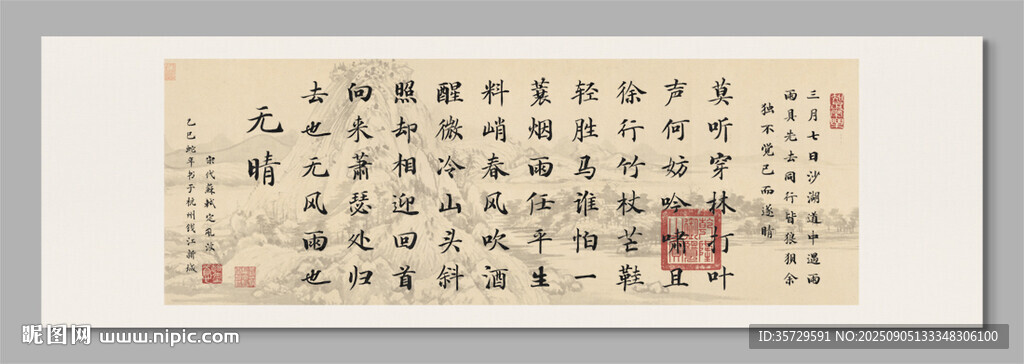 三月七日沙湖道中遇雨
雨具先去同行皆狼狈余
独不觉已而遂晴
莫听穿林打叶
声何妨吟啸且
徐行竹杖芒鞋
轻胜马谁怕一
蓑烟雨任平生
料峭春风吹酒
醒微冷山头斜
照却相迎回首
向来萧瑟处归
去也无风雨也
无晴
宋代蘇軾定風波
乙巳蛇年书于杭州钱江新城
昵图网 www.nipic.com
ID:35729591 NO:20250905133348306100